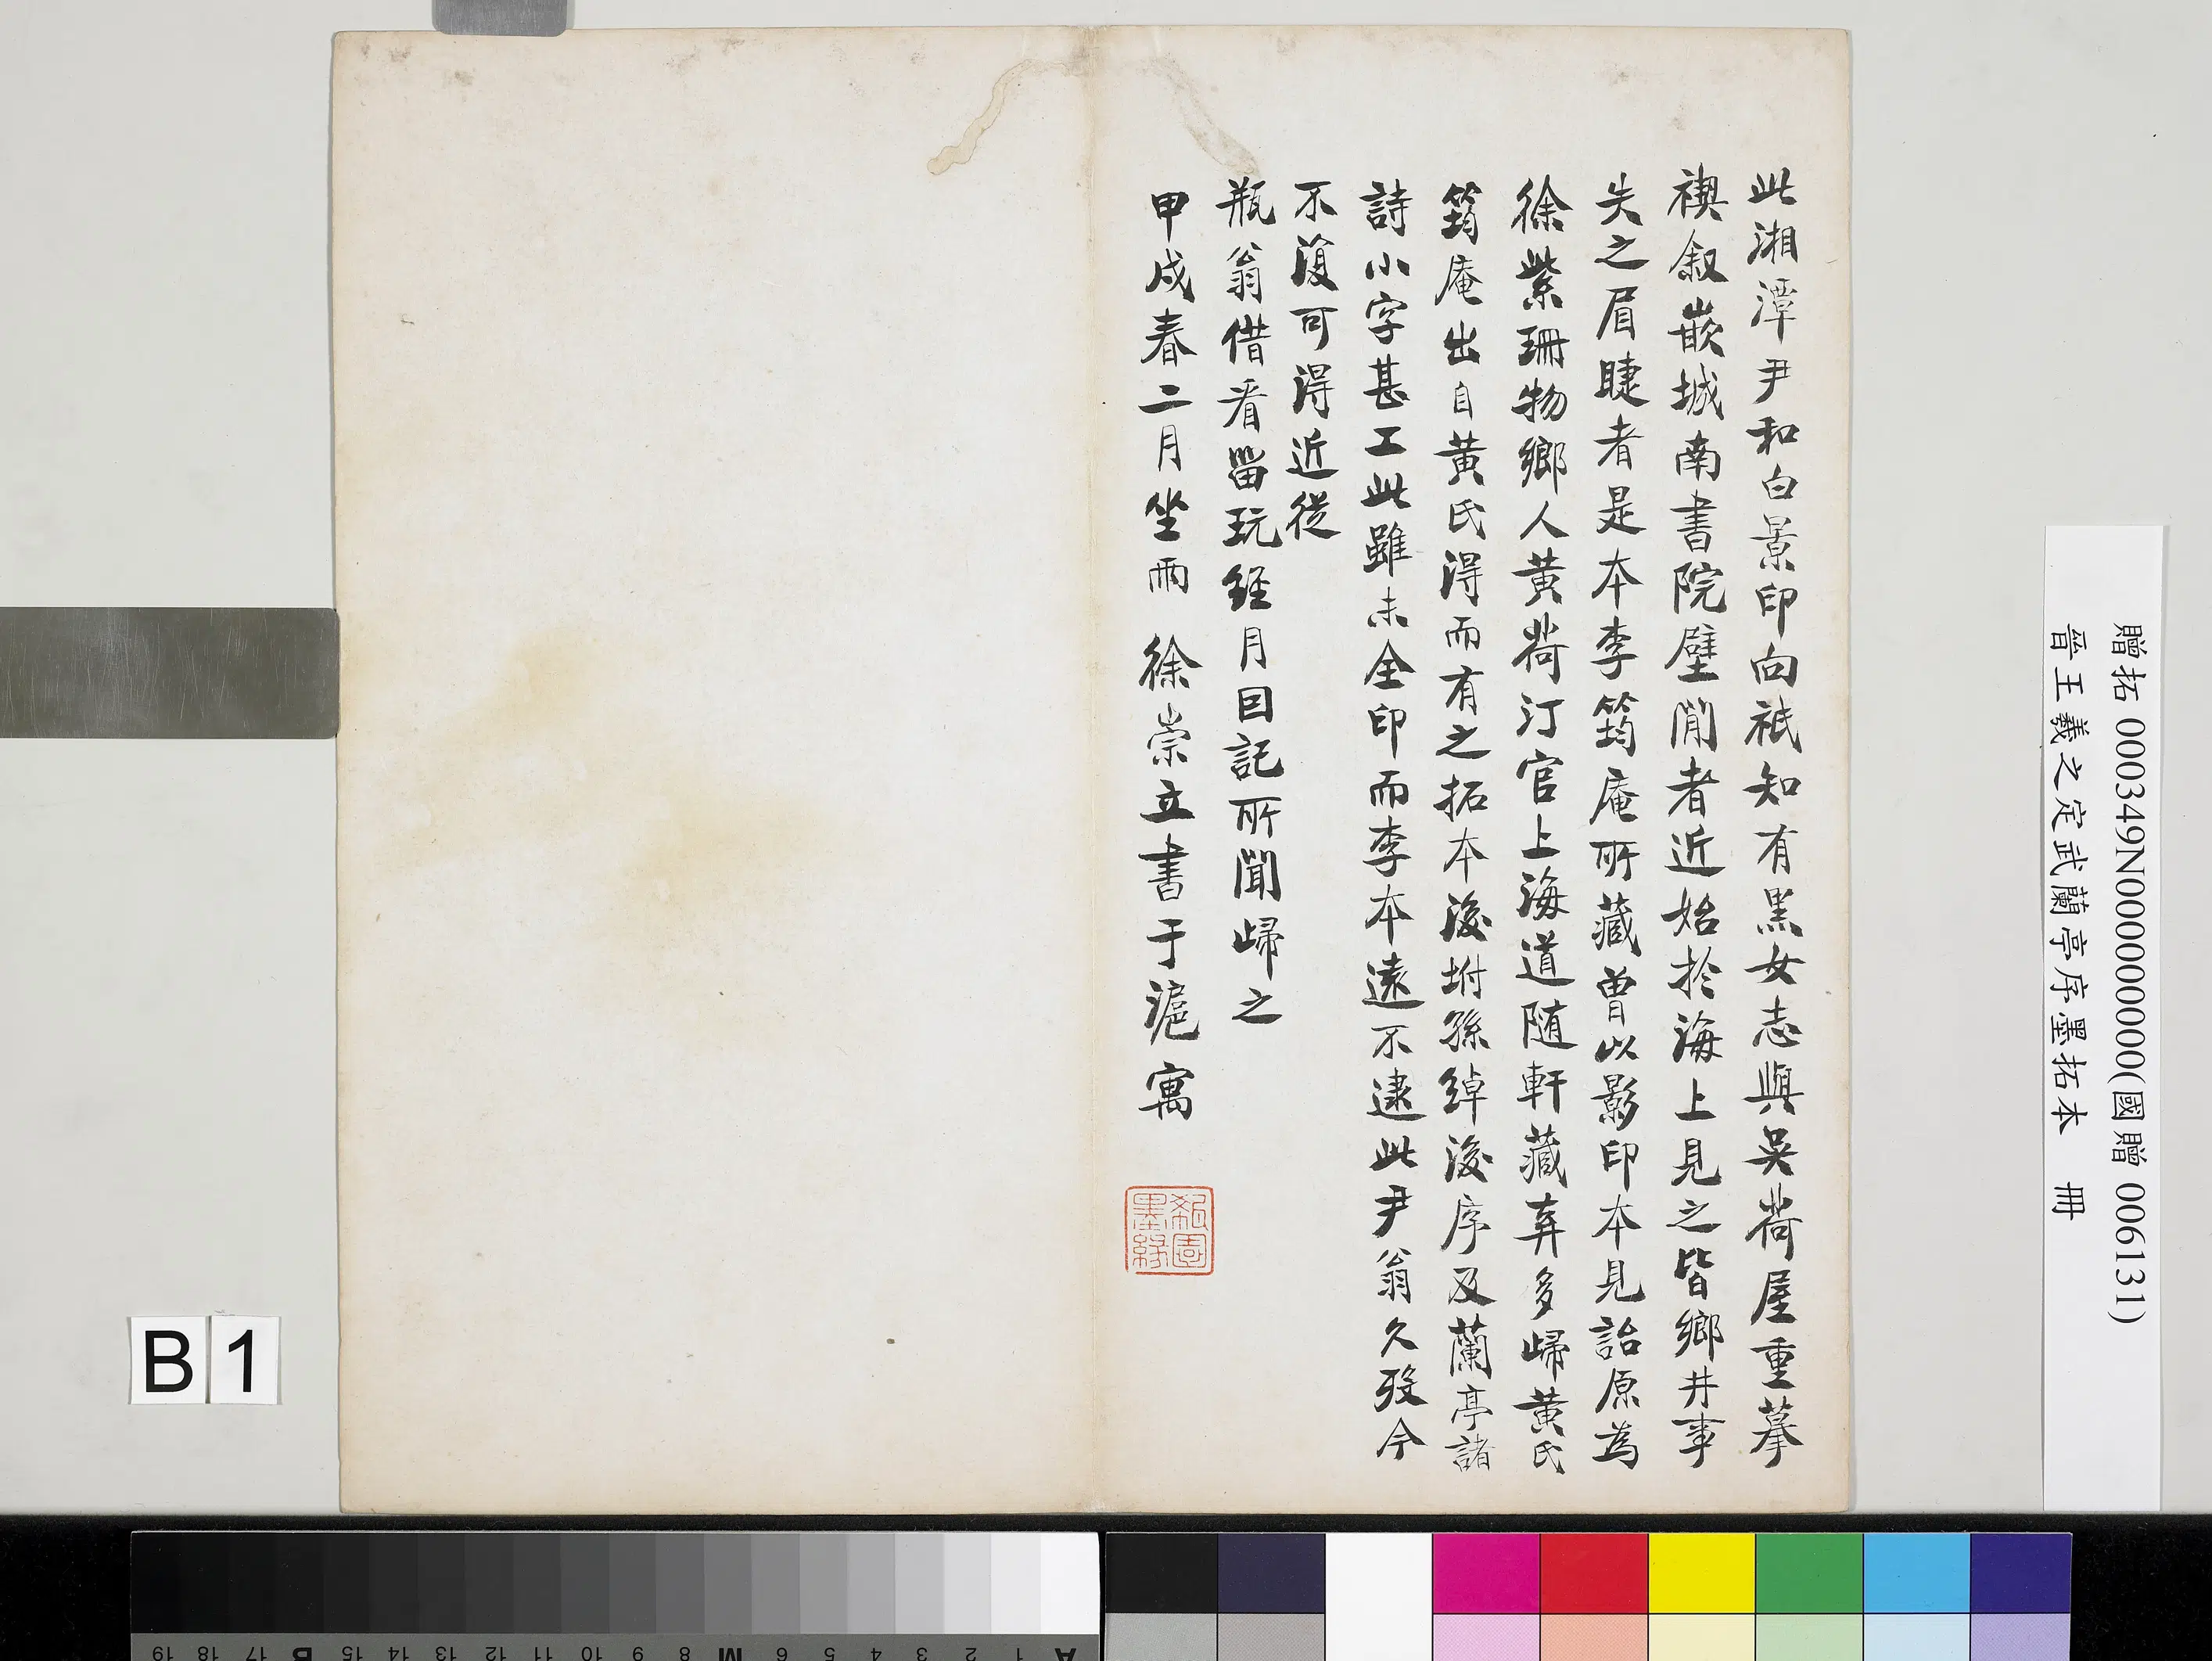 此湘潭尹和白景印向祇知有黑女志與吳荷屋重摹
禊叙嵌城南書院壁間者近始於海上見之皆鄉井事
失之眉睫者是本李筠庵所藏曾以影印本見詒原為
徐紫珊物鄉人黃荷汀官上海道隨軒藏弆多歸黃氏
筠庵出自黃氏得而有之拓本後坿孫綽後序及蘭亭諸
詩小字甚工此雖未全印而李本遠不逮此尹翁久歿今
不復可得近從
瓶翁借看留玩經月因記所聞歸之
甲戌春二月坐雨 徐崇立書于滬寓
瓻園墨緣
贈拓 000349N000000000(國贈 006131)
晉王羲之定武蘭亭序墨拓本 冊
B 1
A 1 2 3 4 5 6 M 8 9 10 11 12 13 14 15 B 17 18 19